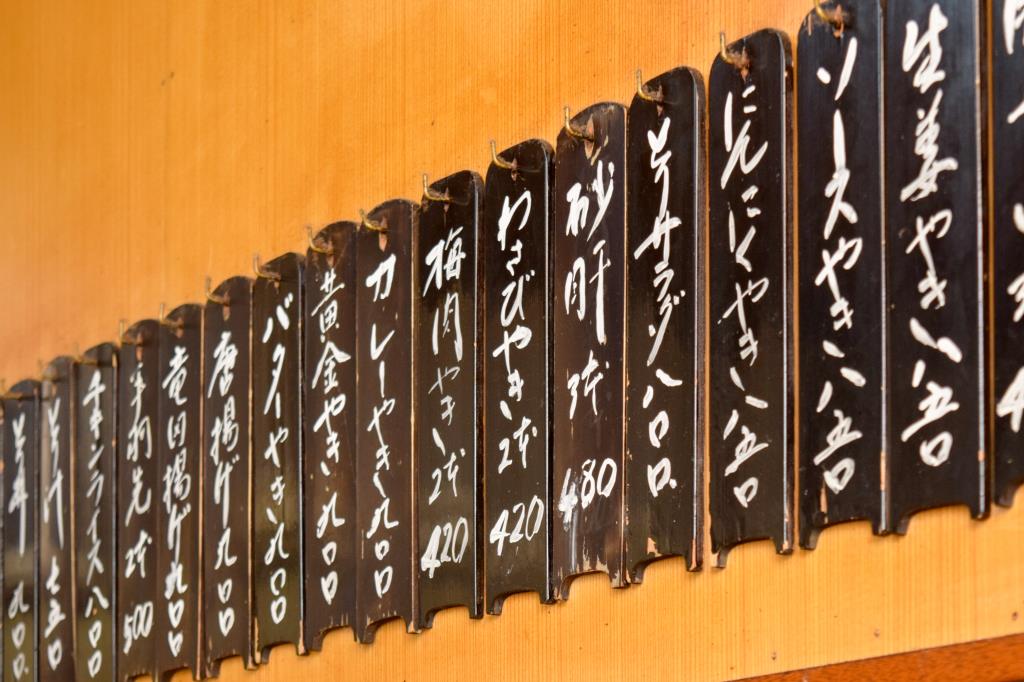 生姜やき 八五〇
ソースやき 八五〇
にんにくやき 八五〇
とりサラダ 八〇〇
砂肝 2本 480
わさびやき 2本 420
梅肉やき 2本 420
カレーやき 九〇〇
黄金やき 九〇〇
バターやき 九〇〇
唐揚げ 九〇〇
竜田揚げ 九〇〇
手羽先 2本 500
チキンライス 八〇〇
とり汁 七五〇
とり丼 九〇〇